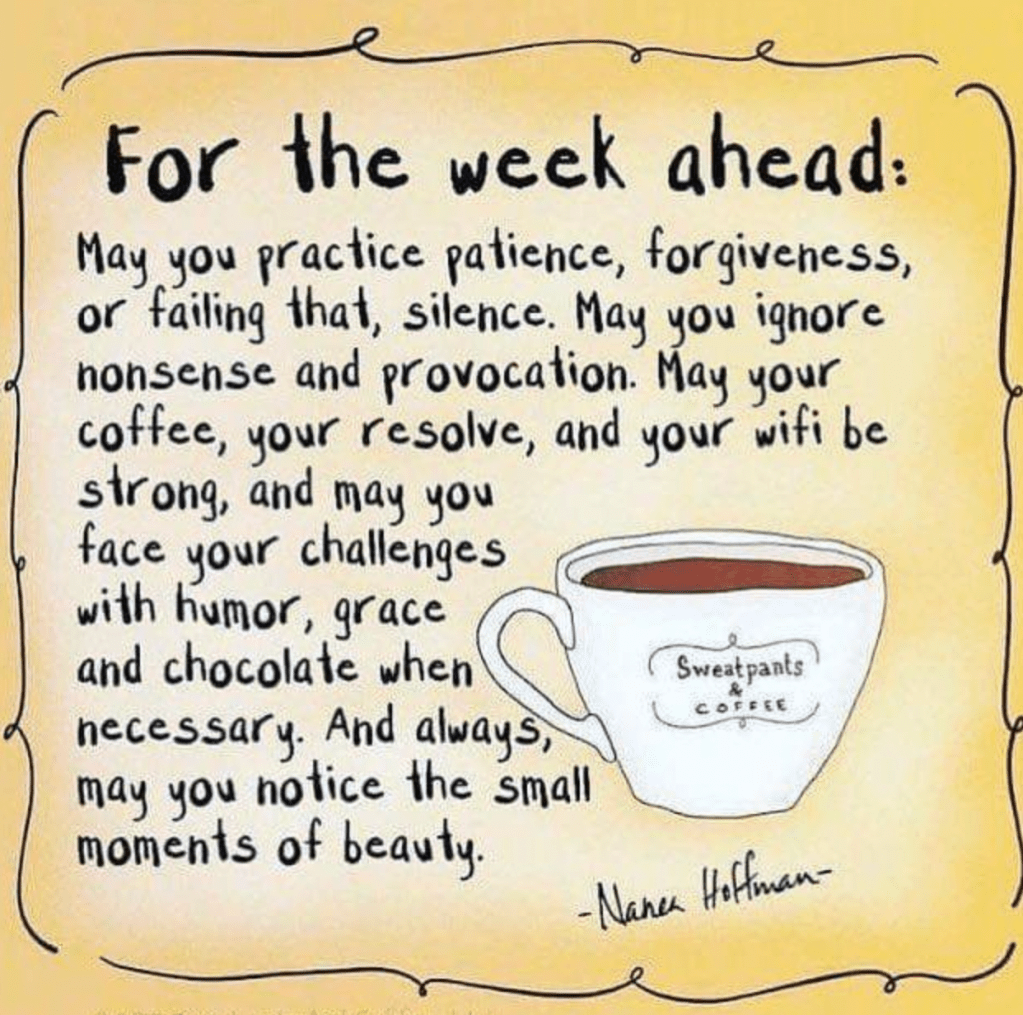 For the week ahead:
May you practice patience, forgiveness,
or failing that, silence. May you ignore
nonsense and provocation. May your
coffee, your resolve, and your wifi be
strong, and may you
face your challenges
with humor, grace
and chocolate when
necessary. And always,
may you notice the small
moments of beauty.
Sweatpants
&
COFFEE
-Nanea Hoffman-